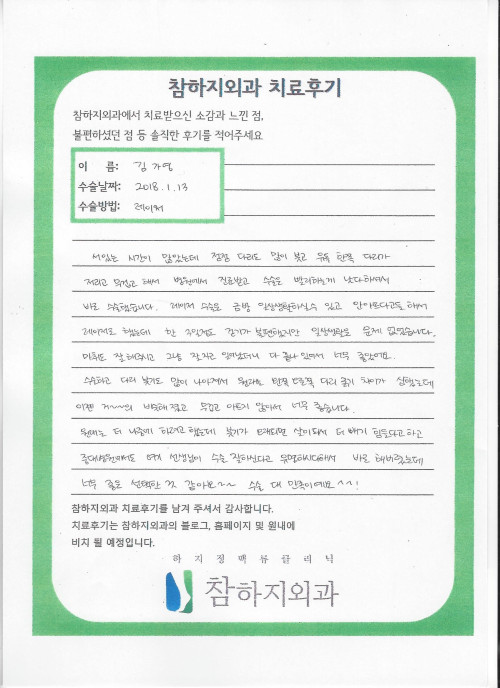 참하지외과 치료후기
참하지외과에서 치료받으신 소감과 느낀 점,
불편하셨던 점 등 솔직한 후기를 적어주세요
이 름: 김가영
수술날짜: 2018. 1. 13
수술방법: 레이저
서있는 시간이 많았는데 점점 다리도 많이 붓고 유독 한쪽 다리가
저리고 무겁고 해서 병원에서 진료받고 수술은 빨리하는게 낫다하셔서
바로 수술했습니다. 레이저 수술은 금방 일상생활하실수 있고 안아프다고들 해서
레이저로 했는데 한 3일정도 걷기가 불편했지만 일상생활은 문제 없었습니다.
마취도 잘 해주시고 그냥 잘 자고 일어났더니 다 끝나 있어서 너무 좋았어요.
수술하고 다리 붓기도 많이 나아져서 원래는 한쪽 다리 굵기 차이가 심했는데
이젠 거~~의 비슷해졌고 무겁고 아프지 않아서 너무 좋습니다.
원래는 더 나중에 하려고 했는데 붓기가 오래되면 살이되서 더 빼기 힘들다고하고
중대병원에서도 여기 선생님이 수술 잘하신다고 유명하시다해서 바로 해버렸는데
너무 좋은 선택한 것 같아요~~ 수술 대 만족이에요^^!
참하지외과 치료후기를 남겨 주셔서 감사합니다.
치료후기는 참하지외과의 블로그, 홈페이지 및 원내에
비치 될 예정입니다.
하지정맥류클리닉
참하지외과